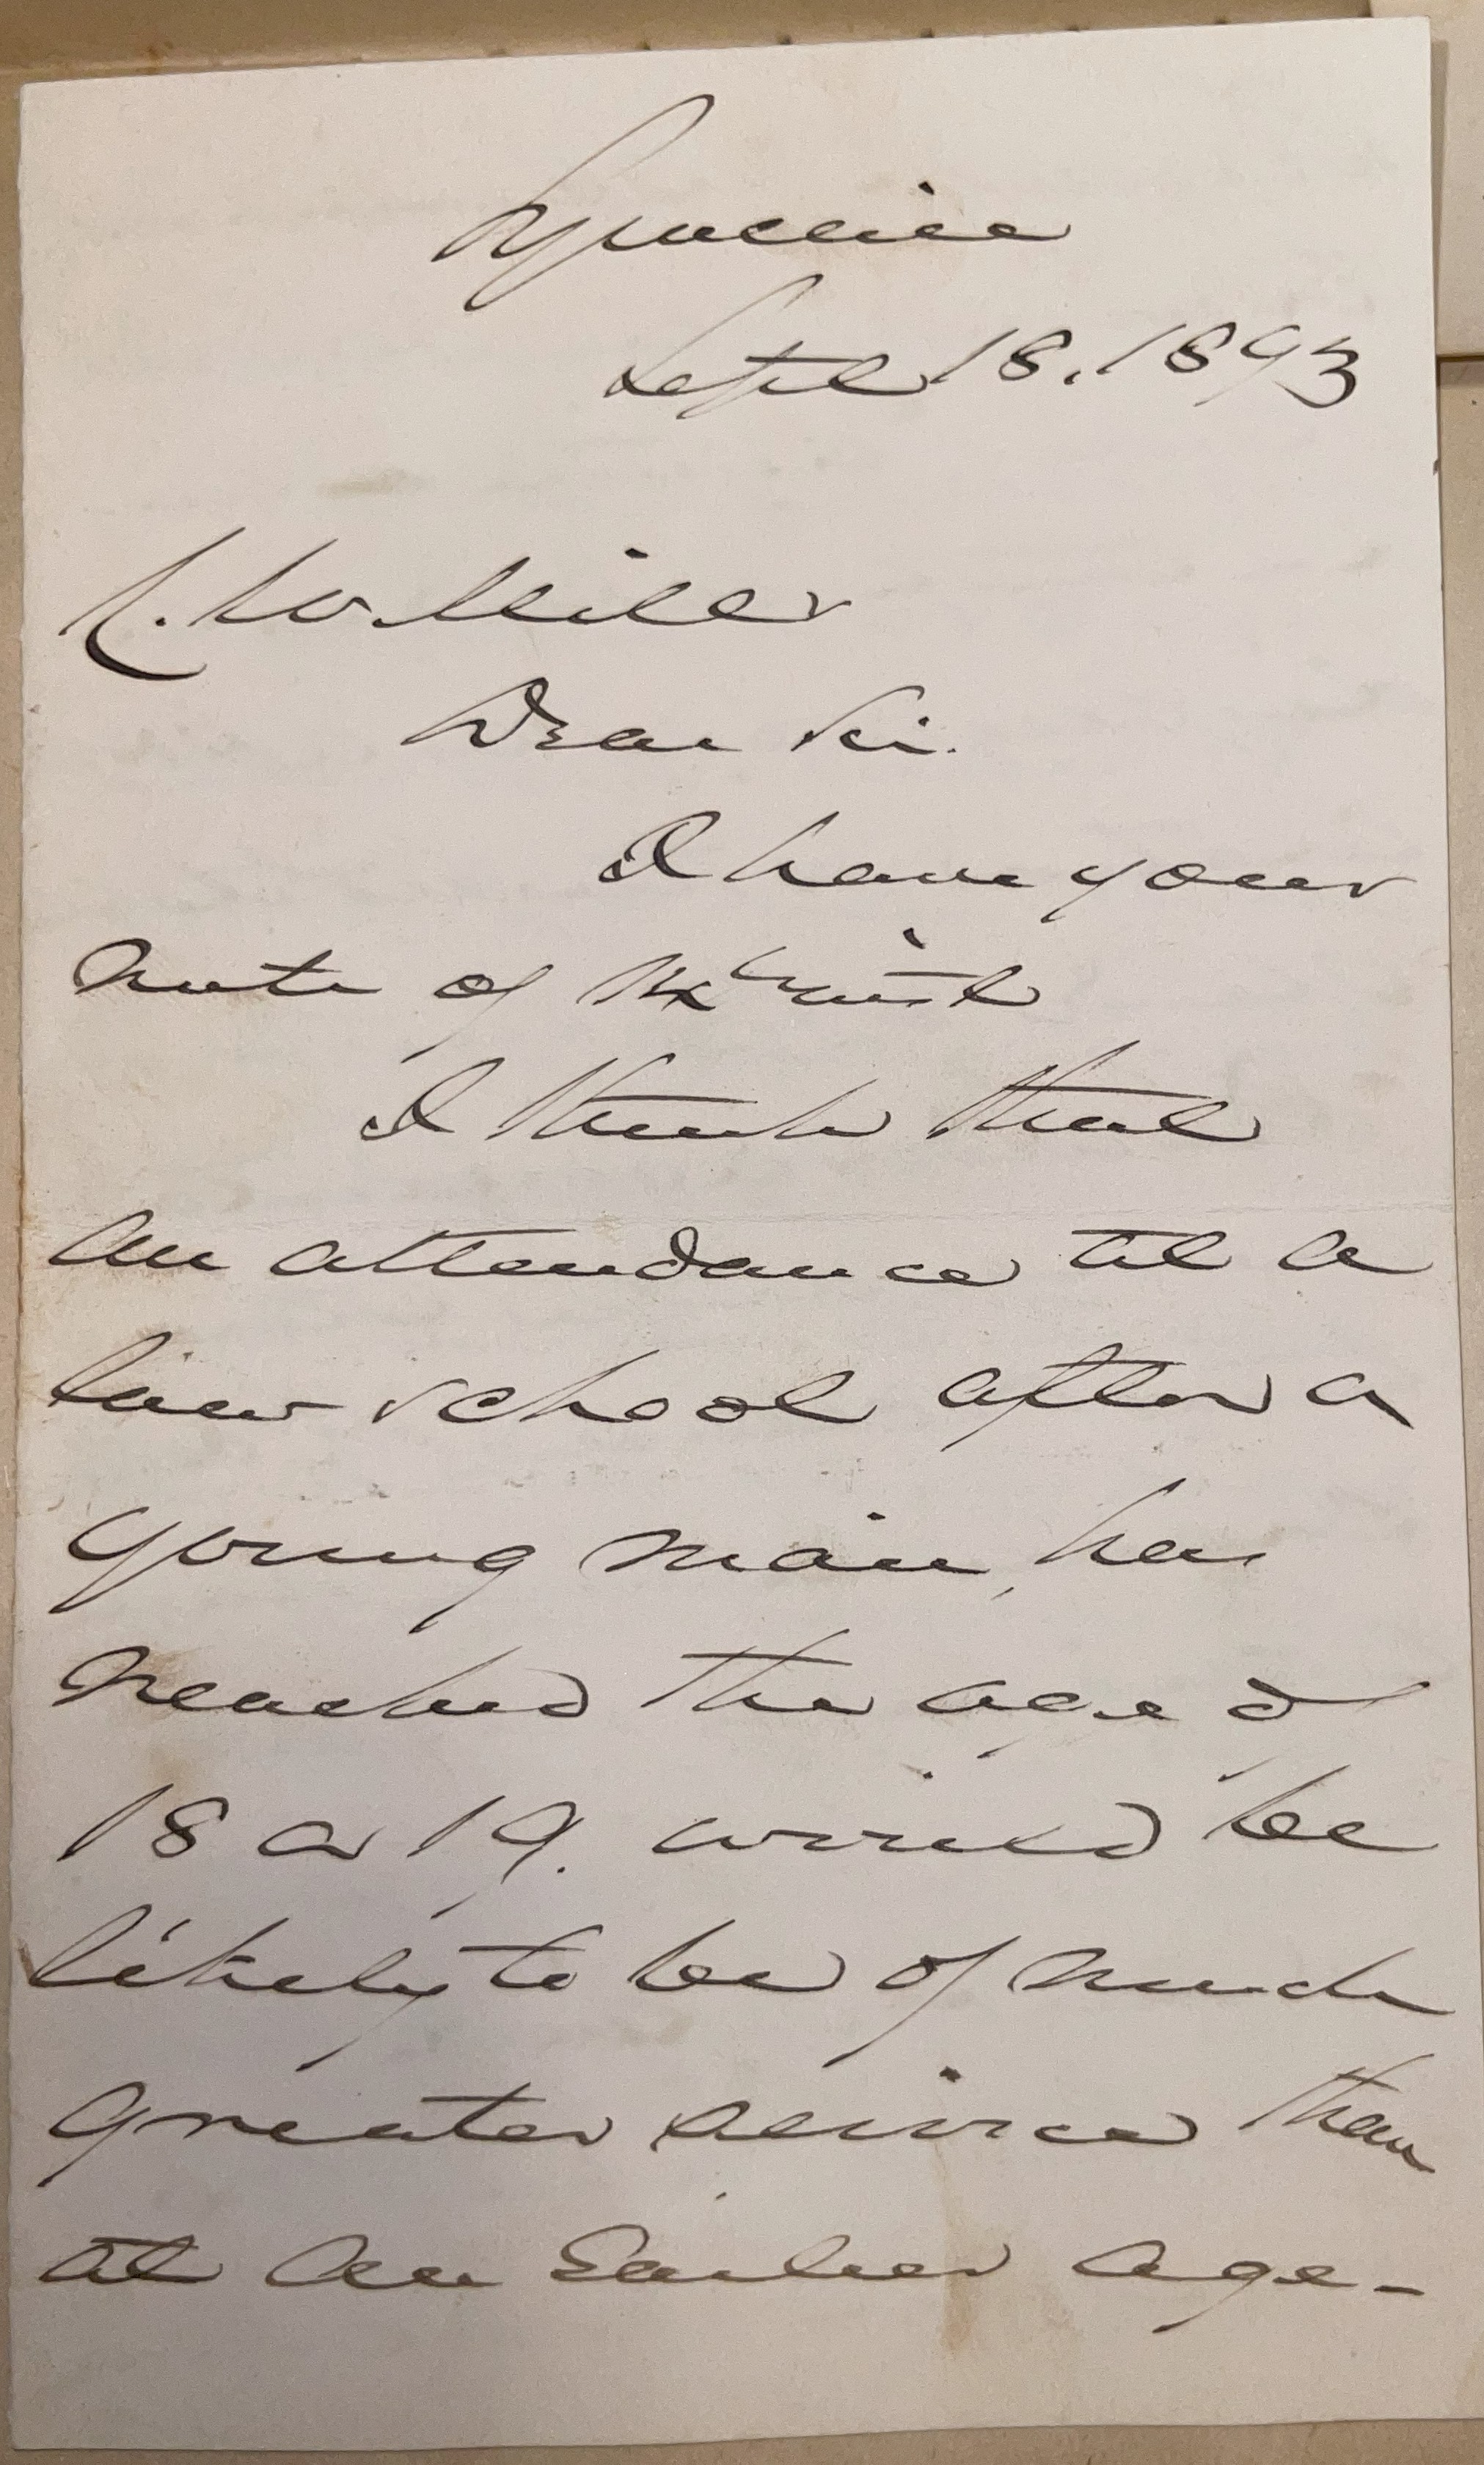 Syracuse
Sept 18. 1893
C. W. Miller
Dear Sir.
I have your
note of 14th inst
I think that
an attendance at a
law school after a
young man has
reached the age of
18 or 19. would be
likely to be of much
greater service than
at an Earlier age-